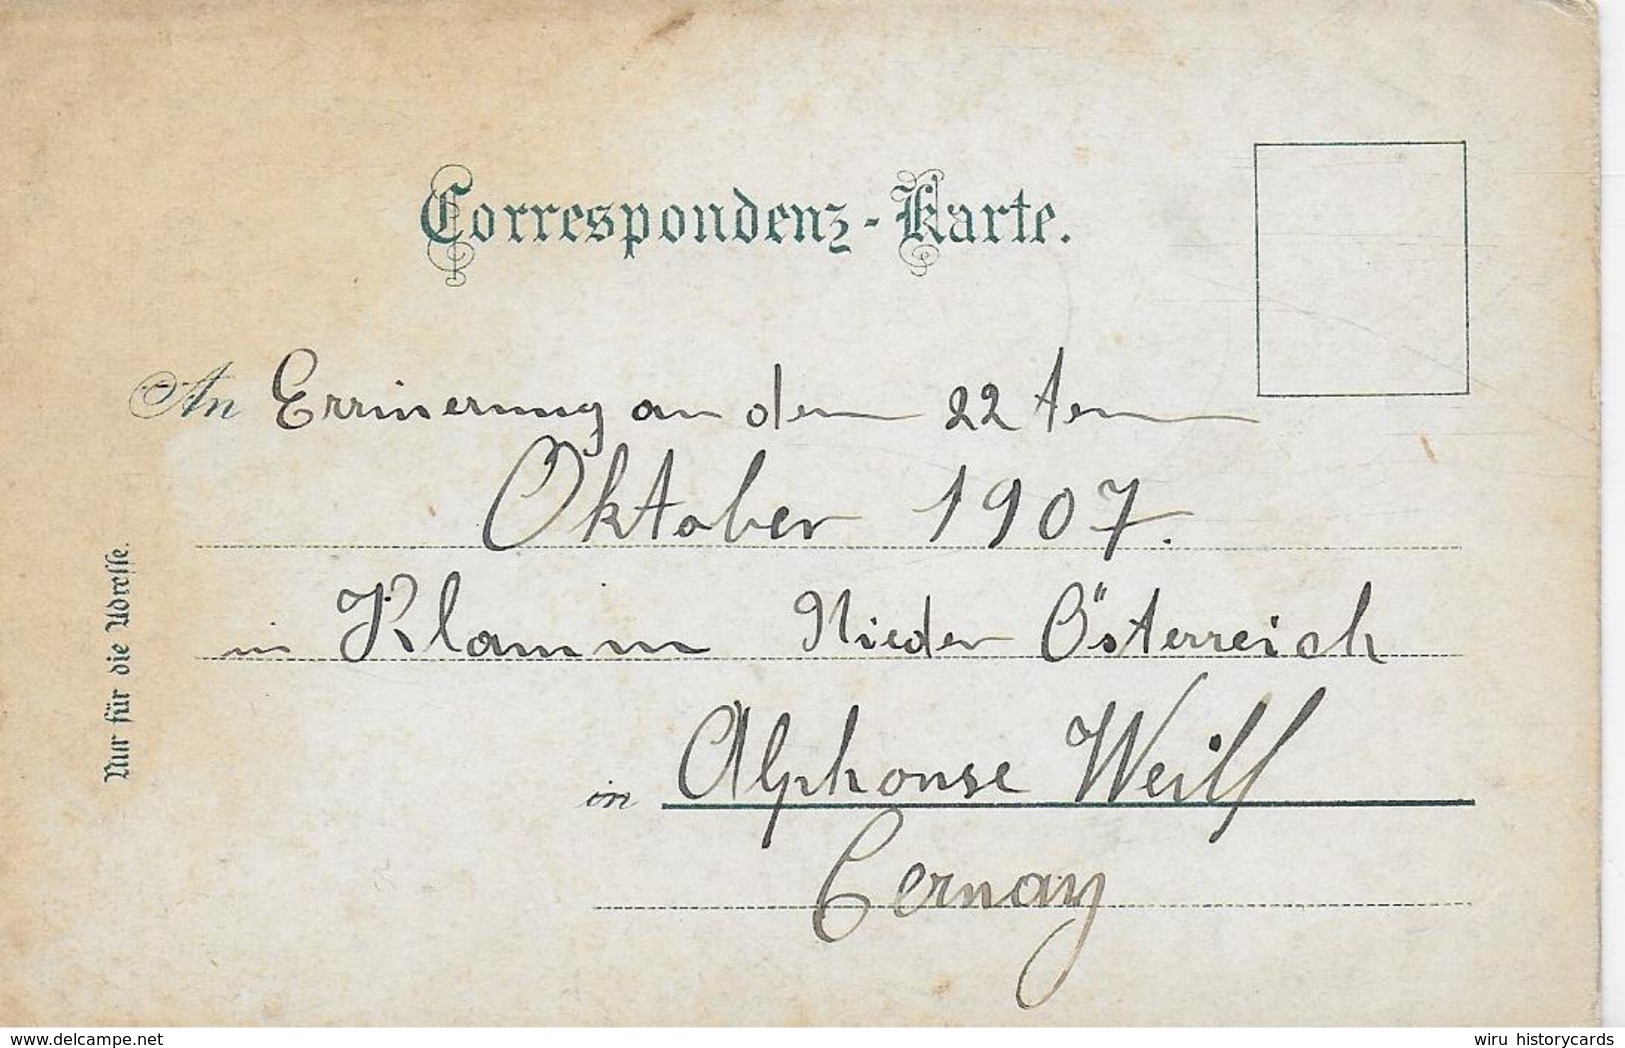 Correspondenz-Karte.
An Errinerung an den 22 ten
Oktober 1907.
in Klamm Nieder Österreich
in Alphonse Weill
Cernay
Nur für die Adresse.
www.delcampe.net
wiru_historycards